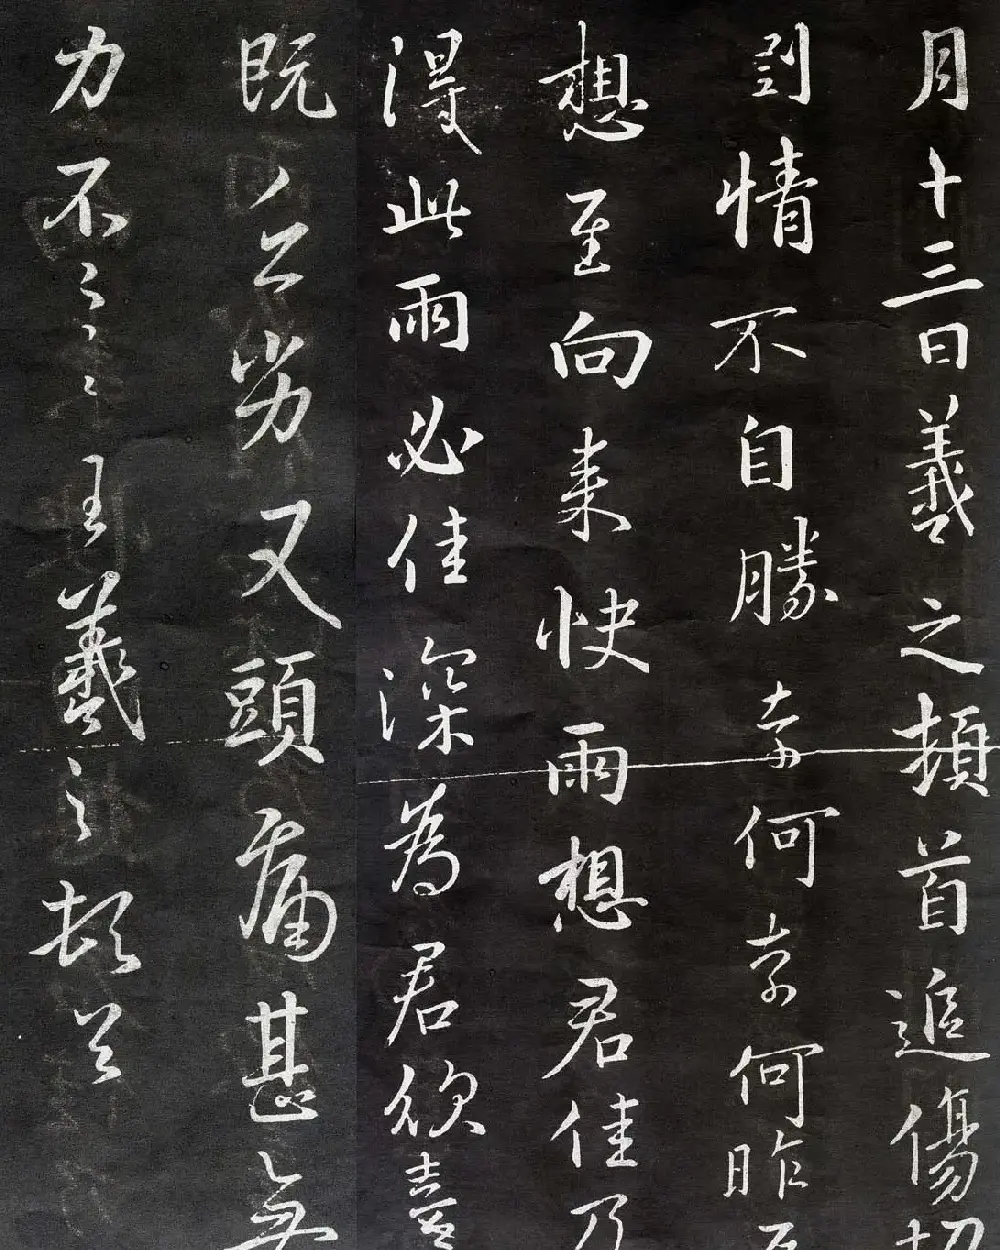 月十三日羲之頓首追傷切
剝情不自勝奈何奈何昨
想至向来快雨想君佳乃
得此雨必佳深為君欣喜
既劣又頭痛甚無
力不一一王羲之頓首